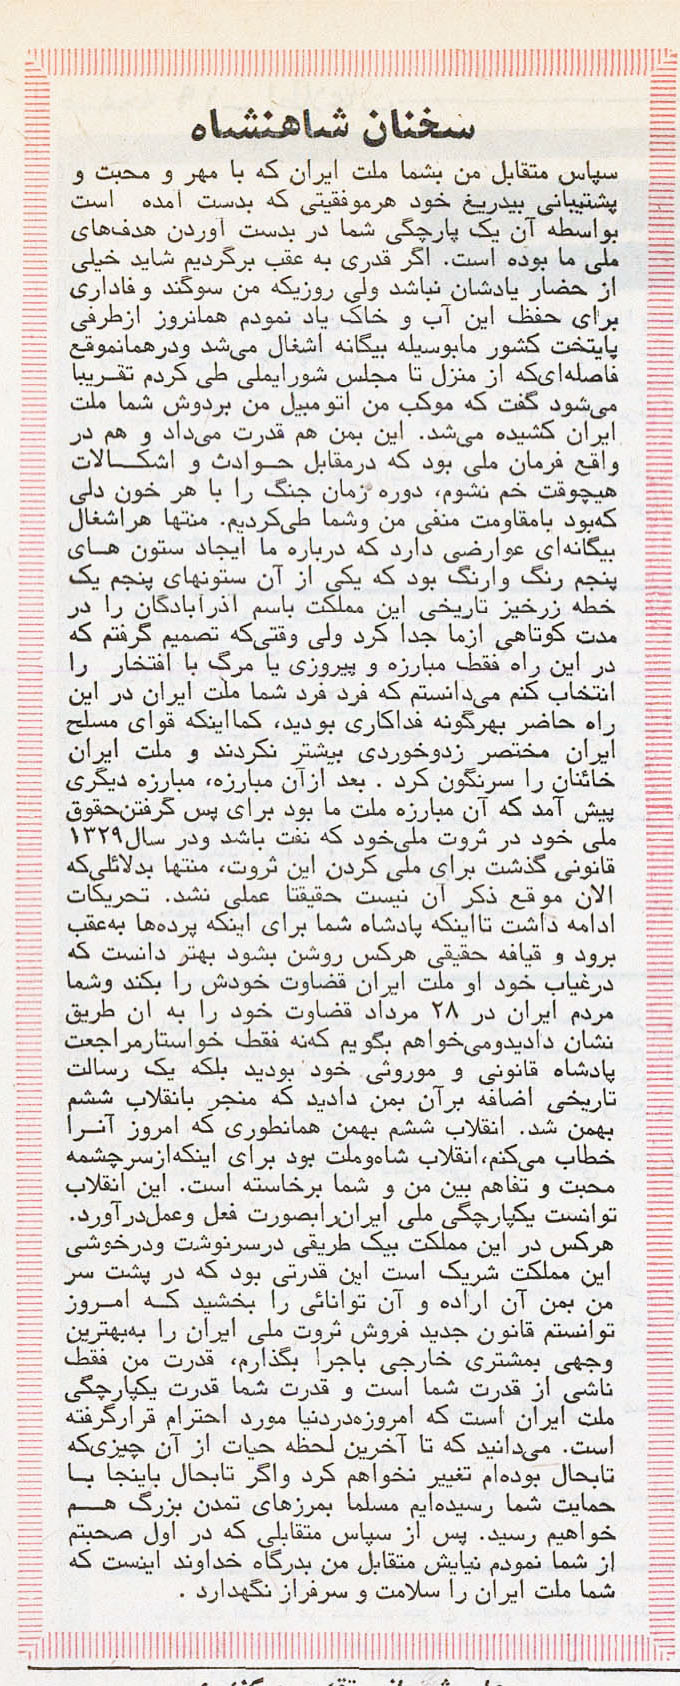 سخنان شاهنشاه
سپاس متقابل من بشما ملت ایران که با مهر و محبت و
پشتیبانی بیدریغ خود هرموفقیتی که بدست آمده است
بواسطه آن یک پارچگی شما در بدست آوردن هدف‌های
ملی ما بوده است. اگر قدری به عقب برگردیم شاید خیلی
از حضار یادشان نباشد ولی روزیکه من سوگند وفاداری
برای حفظ این آب و خاک یاد نمودم همانروز ازطرفی
پایتخت کشور مابوسیله بیگانه اشغال می‌شد ودرهمانموقع
فاصله‌ای‌که از منزل تا مجلس شورایملی طی کردم تقریبا
می‌شود گفت که موکب من اتومبیل من بردوش شما ملت
ایران کشیده می‌شد. این بمن هم قدرت می‌داد و هم در
واقع فرمان ملی بود که درمقابل حوادث و اشکالات
هیچوقت خم نشوم، دوره زمان جنگ را با هر خون دلی
که‌بود بامقاومت منفی من وشما طی‌کردیم. منتها هراشغال
بیگانه‌ای عوارضی دارد که درباره ما ایجاد ستون های
پنجم رنگ وارنگ بود که یکی از آن ستونهای پنجم یک
خطه زرخیز تاریخی این مملکت باسم آذرآبادگان را در
مدت کوتاهی ازما جدا کرد ولی وقتی‌که تصمیم گرفتم که
در این راه فقط مبارزه و پیروزی یا مرگ با افتخار را
انتخاب کنم می‌دانستم که فرد فرد شما ملت ایران در این
راه حاضر بهرگونه فداکاری بودید، کمااینکه قوای مسلح
ایران مختصر زدوخوردی بیشتر نکردند و ملت ایران
خائنان را سرنگون کرد . بعد ازآن مبارزه، مبارزه دیگری
پیش آمد که آن مبارزه ملت ما بود برای پس گرفتن‌حقوق
ملی خود در ثروت ملی‌خود که نفت باشد ودر سال۱۳۲۹
قانونی گذشت برای ملی کردن این ثروت، منتها بدلائلی‌که
الان موقع ذکر آن نیست حقیقتا عملی نشد. تحریکات
ادامه داشت تااینکه پادشاه شما برای اینکه پرده‌ها به‌عقب
برود و قیافه حقیقی هرکس روشن بشود بهتر دانست که
درغیاب خود او ملت ایران قضاوت خودش را بکند وشما
مردم ایران در ۲۸ مرداد قضاوت خود را به آن طریق
نشان دادیدومی‌خواهم بگویم که‌نه فقط خواستارمراجعت
پادشاه قانونی و موروثی خود بودید بلکه یک رسالت
تاریخی اضافه برآن بمن دادید که منجر بانقلاب ششم
بهمن شد. انقلاب ششم بهمن همانطوری که امروز آنرا
خطاب می‌کنم،انقلاب شاه‌وملت بود برای اینکه‌ازسرچشمه
محبت و تفاهم بین من و شما برخاسته است. این انقلاب
توانست یکپارچگی ملی ایران‌رابصورت فعل وعمل‌درآورد.
هرکس در این مملکت بیک طریقی درسرنوشت ودرخوشی
این مملکت شریک است این قدرتی بود که در پشت سر
من بمن آن اراده و آن توانائی را بخشید که امروز
توانستم قانون جدید فروش ثروت ملی ایران را به‌بهترین
وجهی بمشتری خارجی باجرا بگذارم، قدرت من فقط
ناشی از قدرت شما است و قدرت شما قدرت یکپارچگی
ملت ایران است که امروزه‌دردنیا مورد احترام قرارگرفته
است. می‌دانید که تا آخرین لحظه حیات از آن چیزی‌که
تابحال بوده‌ام تغییر نخواهم کرد واگر تابحال باینجا با
حمایت شما رسیده‌ایم مسلما بمرزهای تمدن بزرگ هم
خواهیم رسید. پس از سپاس متقابلی که در اول صحبتم
از شما نمودم نیایش متقابل من بدرگاه خداوند اینست که
شما ملت ایران را سلامت و سرفراز نگهدارد .